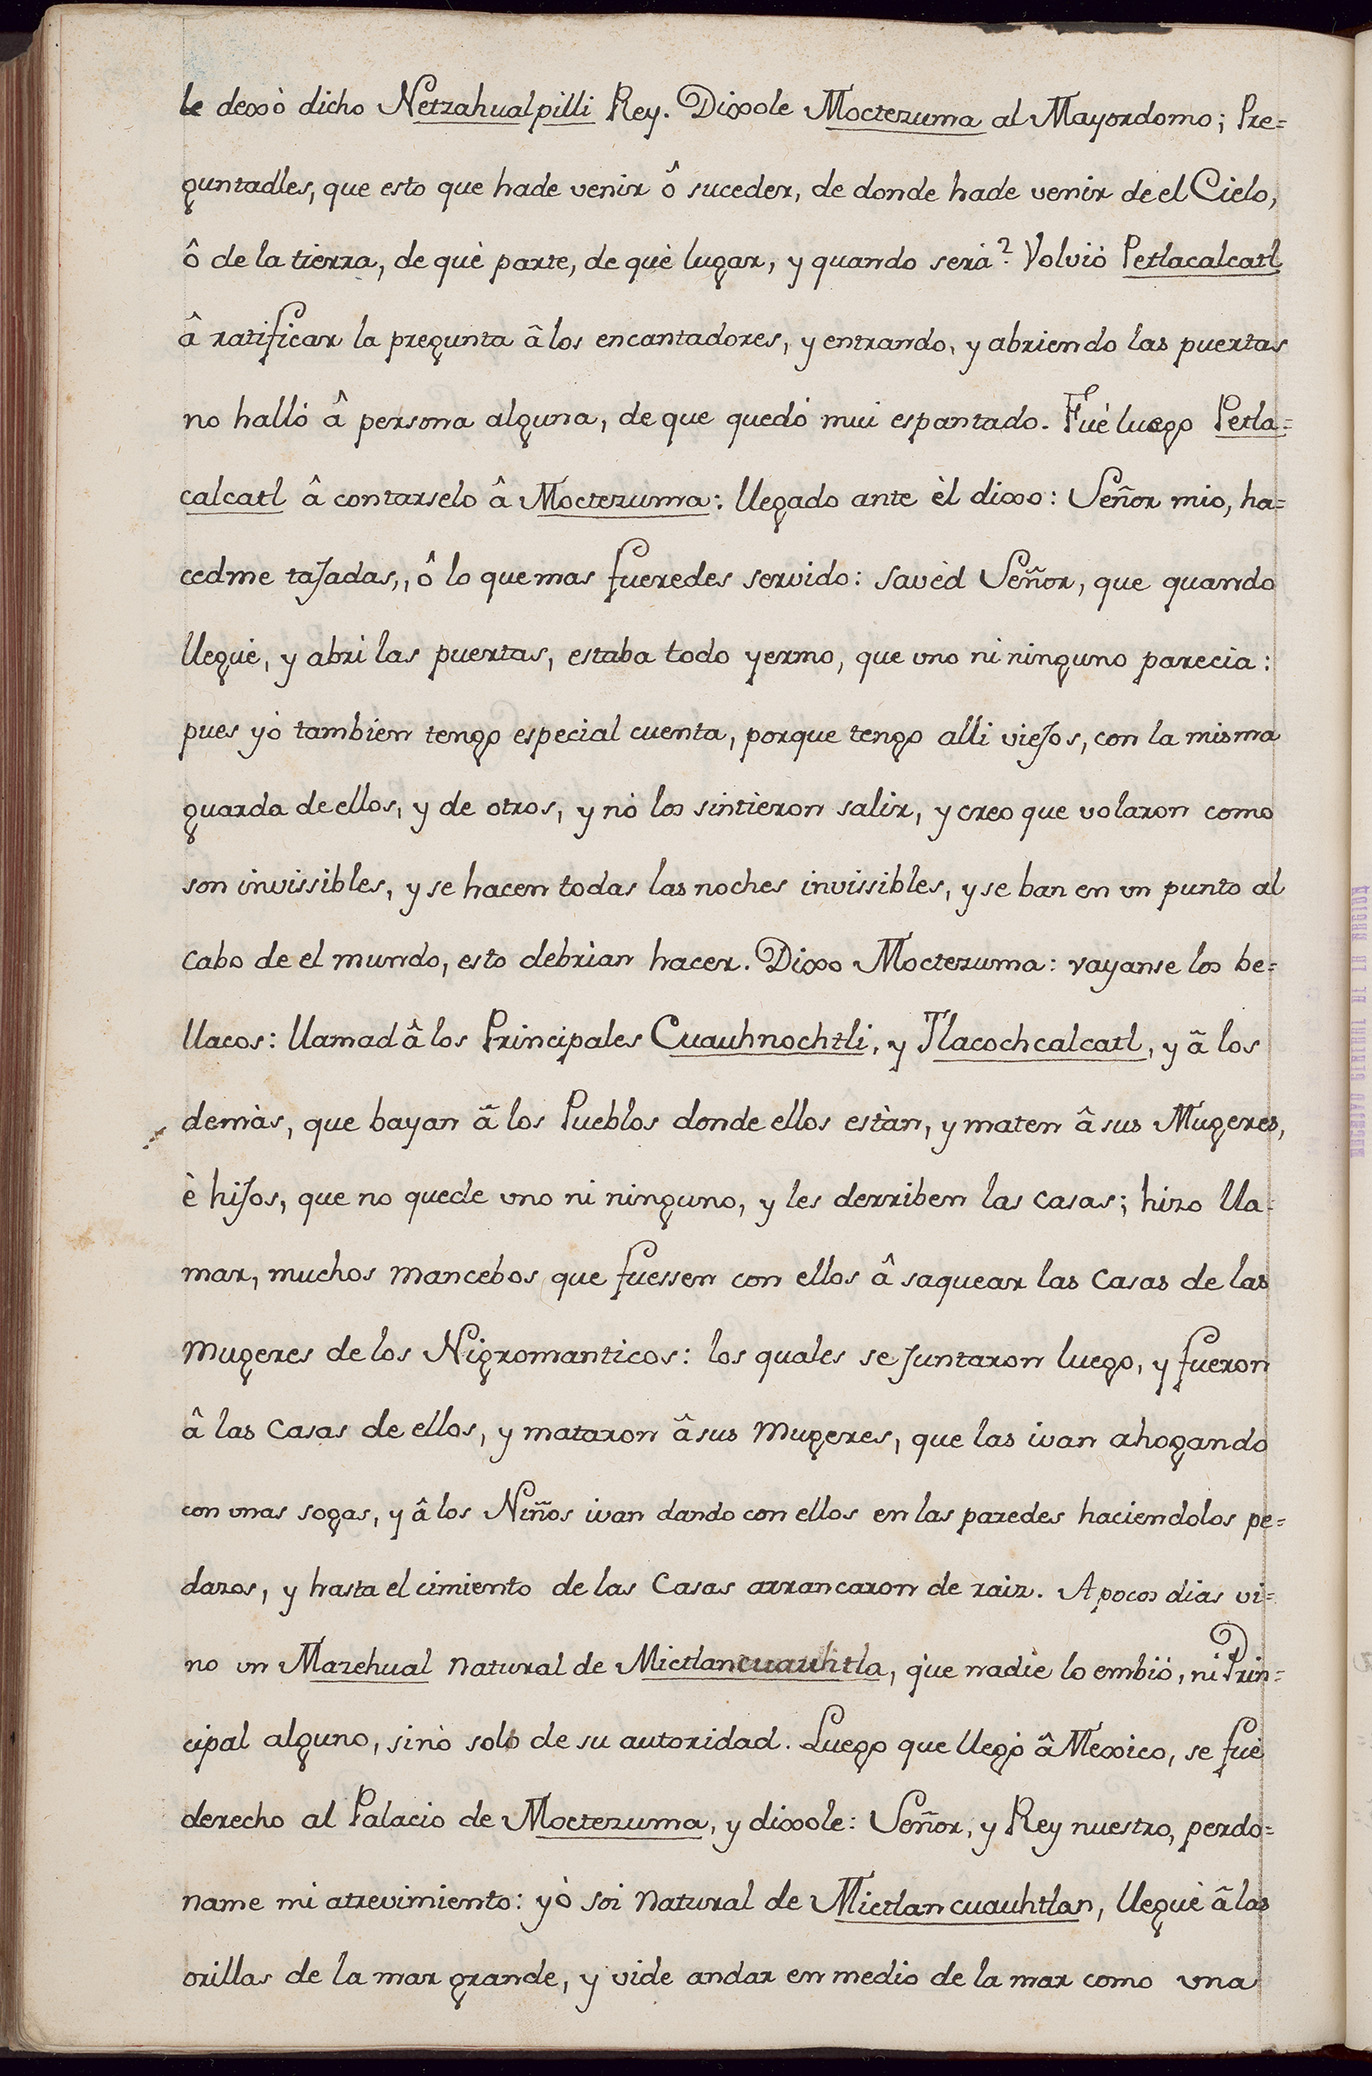 le dexò dicho Netzahualpilli Rey. Dixole Moctezuma al Mayordomo; Pre=
guntadles, que esto que hade venir ô suceder, de donde hade venir de el Cielo,
ô de la tierra, de què parte, de què lugar, y quando serà? Volviò Petlacalcatl
â ratificar la pregunta â los encantadores, y entrando, y abriendo las puertas
no hallò â persona alguna, de que quedò mui espantado. Fuè luego Petla=
calcatl â contarselo â Moctezuma: llegado ante èl dixo: Señor mio, ha=
cedme taJadas,, ô lo que mas fueredes servido: savèd Señor, que quando
lleguè, y abri las puertas, estaba todo yermo, que uno ni ninguno parecia:
pues yò tambien tengo especial cuenta, porque tengo alli vieJos, con la misma
guarda de ellos, y de otros, y nò los sintieron salir, y creo que volaron como
son invissibles, y se hacen todas las noches invissibles, y se ban en un punto al
cabo de el mundo, esto debrian hacer. Dixo Moctezuma: vayanse los be=
llacos: llamad â los Principales Cuauhnochtli, y Tlacochcalcatl, y â los
demàs, que bayan â los Pueblos donde ellos estàn, y maten â sus Mugeres,
è hiJos, que no quede uno ni ninguno, y les derriben las casas; hizo lla=
mar, muchos mancebos que fuessen con ellos â saquear las Casas de las
Mugeres de los Nigromanticos: los quales se Juntaron luego, y fueron
â las Casas de ellos, y mataron â sus Mugeres, que las ivan ahogando
con unas sogas, y â los Niños ivan dando con ellos en las paredes haciendolos pe=
dazos, y hasta el cimiento de las Casas arrancaron de raiz. A pocos dias vi=
no un Mazehual natural de Mictlancuauhtla, que nadie lo embiò, ni Prin=
cipal alguno, sinò solo de su autoridad. Luego que llegò â Mexico, se fuè
derecho al Palacio de Moctezuma, y dixole: Señor, y Rey nuestro, perdo=
name mi atrevimiento: yò soi natural de Mictlancuauhtlan, lleguè â las
orillas de la mar grande, y vide andar en medio de la mar como una
ARCHIVO GENERAL DE LA NACION